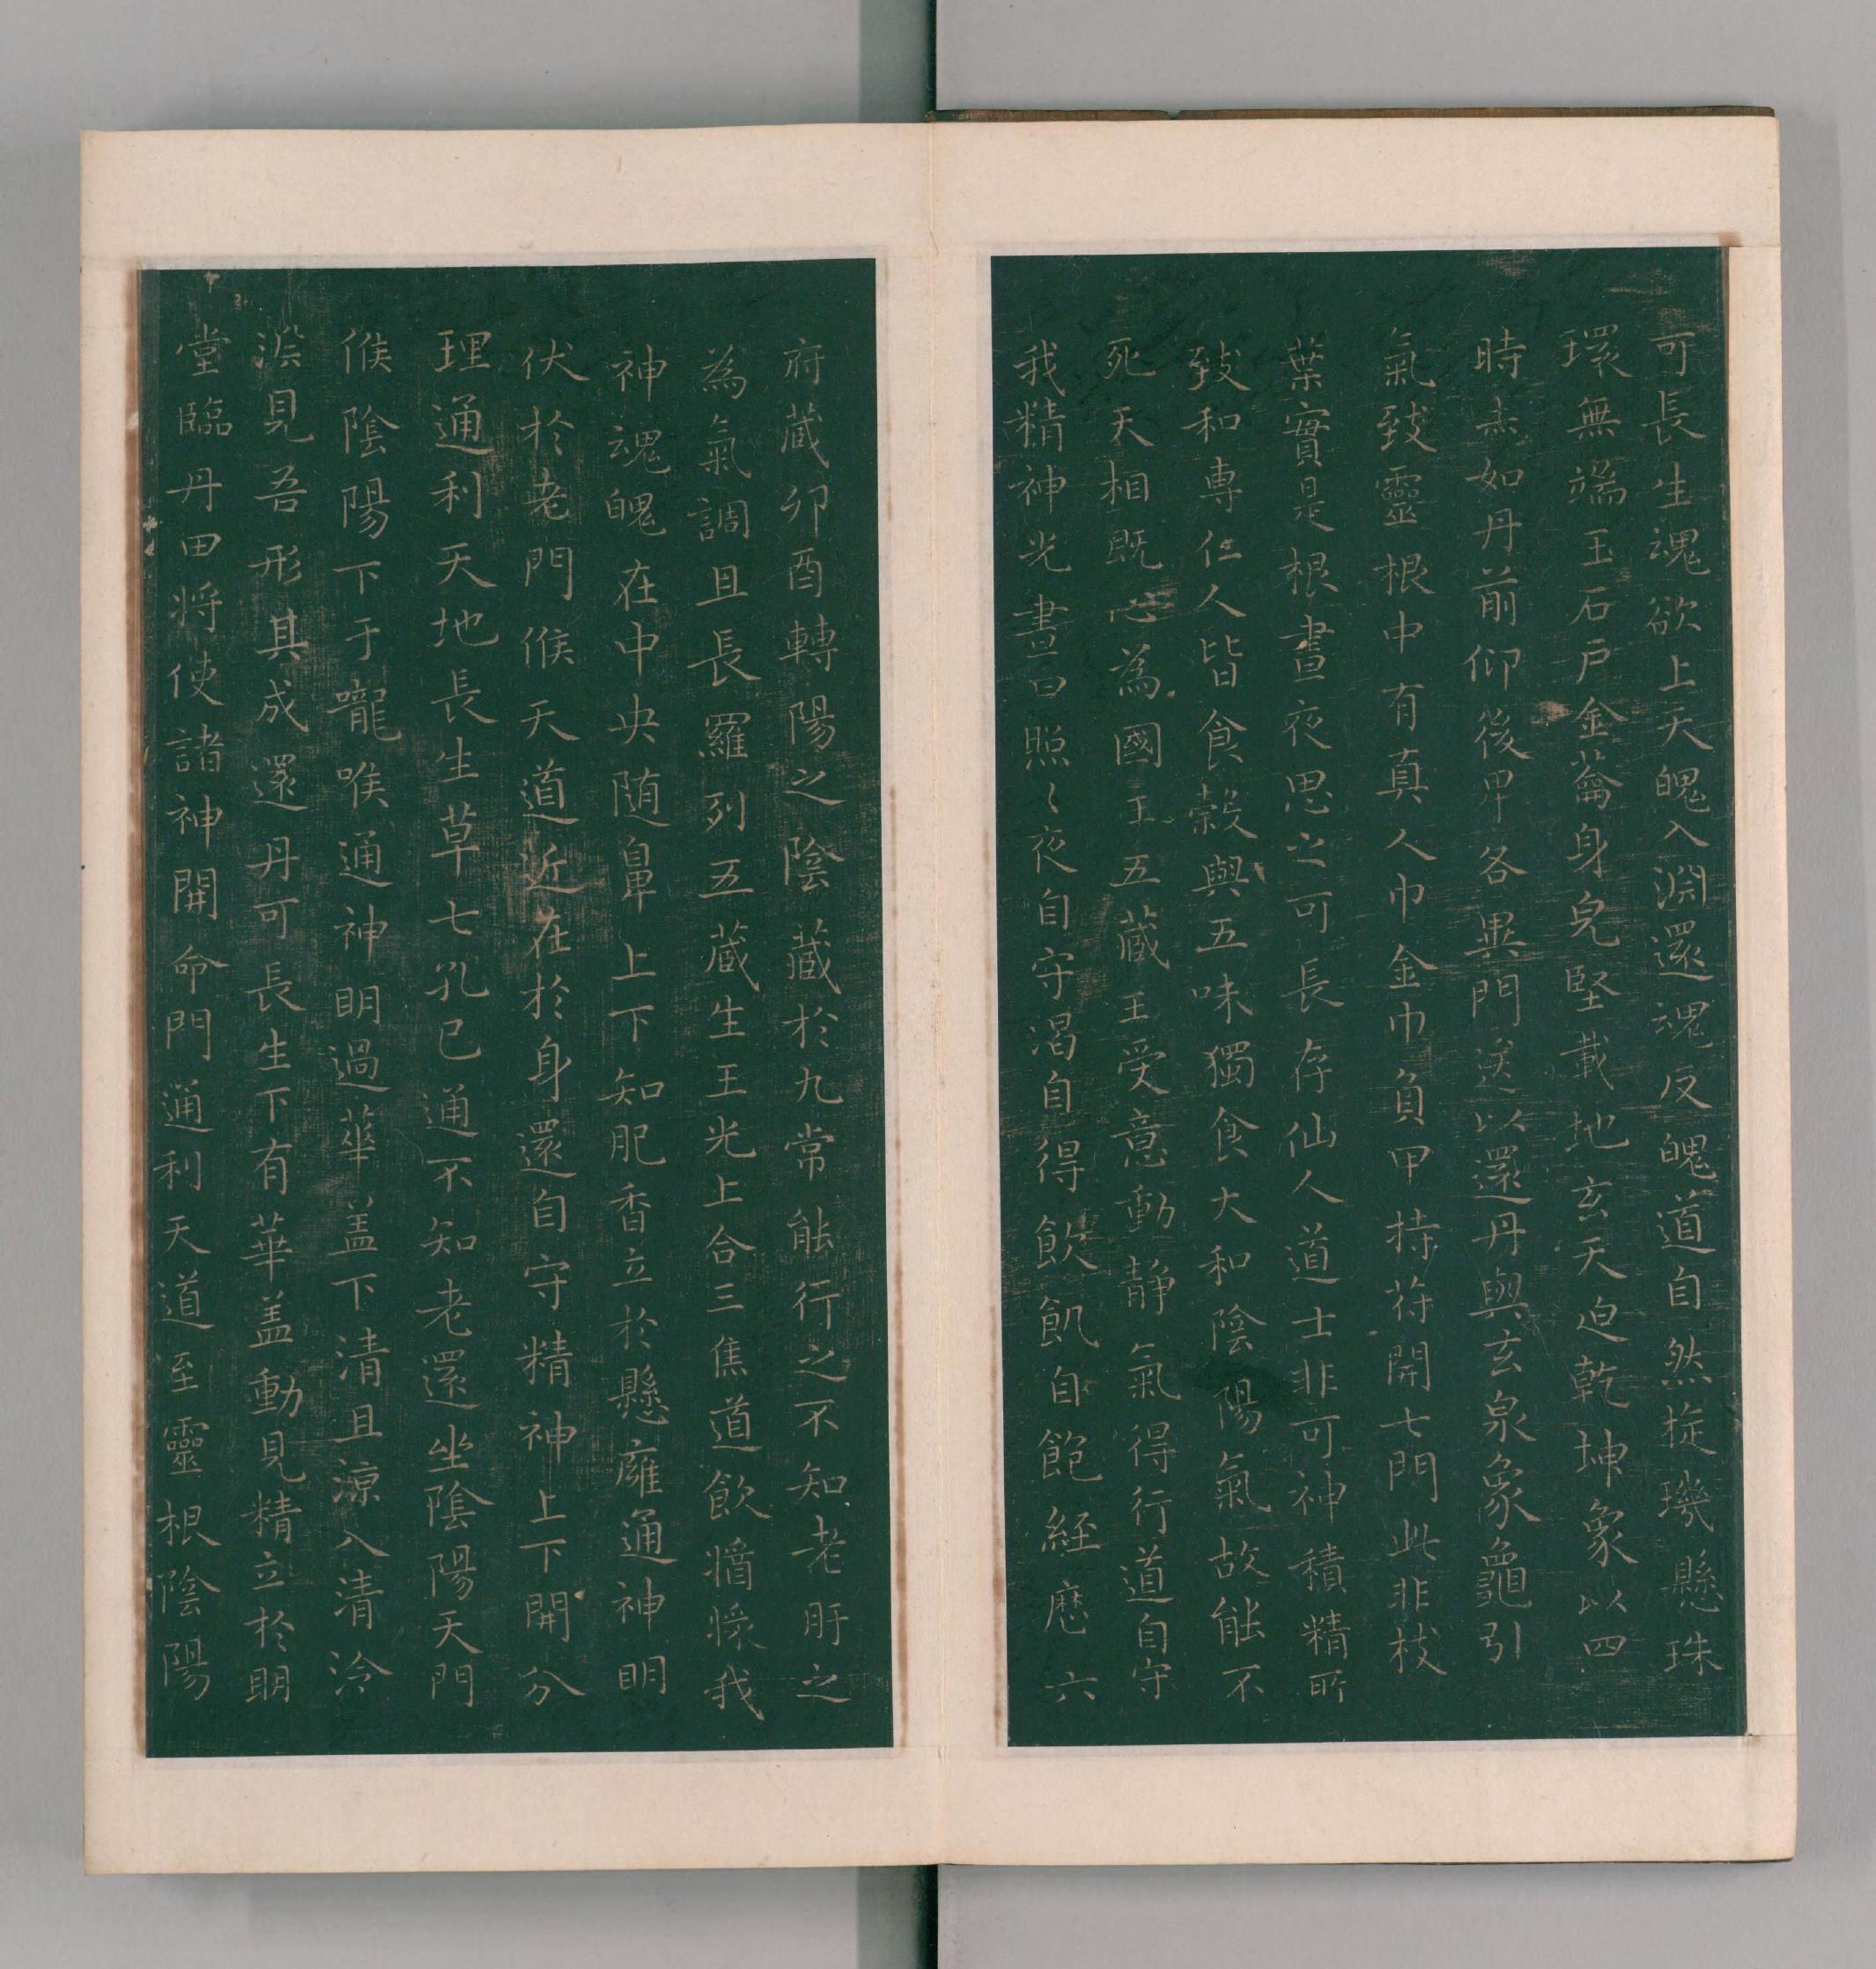 可長生魂欲上天魄入淵還魂反魄道自然㨁璣懸珠
環無端玉石戶金蘥身皃堅載地玄天迫乾坤象以四
時赤如丹前仰後卑各異門送以還丹與玄泉象龜引
氣致靈根中有真人巾金巾負甲持苻開七門此非枝
葉實是根晝夜思之可長存仙人道士非可神積精所
致和專仁人皆食穀與五味獨食大和陰陽氣故能不
死天相既心為國王五藏王受意動靜氣得行道自守
我精神光晝日照〻夜自守渴自得飲飢自飽經歷六
府藏卯酉轉陽之陰藏於九常能行之不知老肝之
為氣調且長羅列五藏生王光上合三焦道飲㨶㯳我
神魂魄在中央随鼻上下知肥香立於懸廱通神明
伏於老門候天道近在於身還自守精神上下開分
理通利天地長生草七孔已通不知老還坐陰陽天門
候陰陽下于嚨喉通神明過華盖下清且涼入清冷
淵見吾形其成還丹可長生下有華盖動見精立於明
堂臨丹田将使諸神開命門通利天道至靈根陰陽